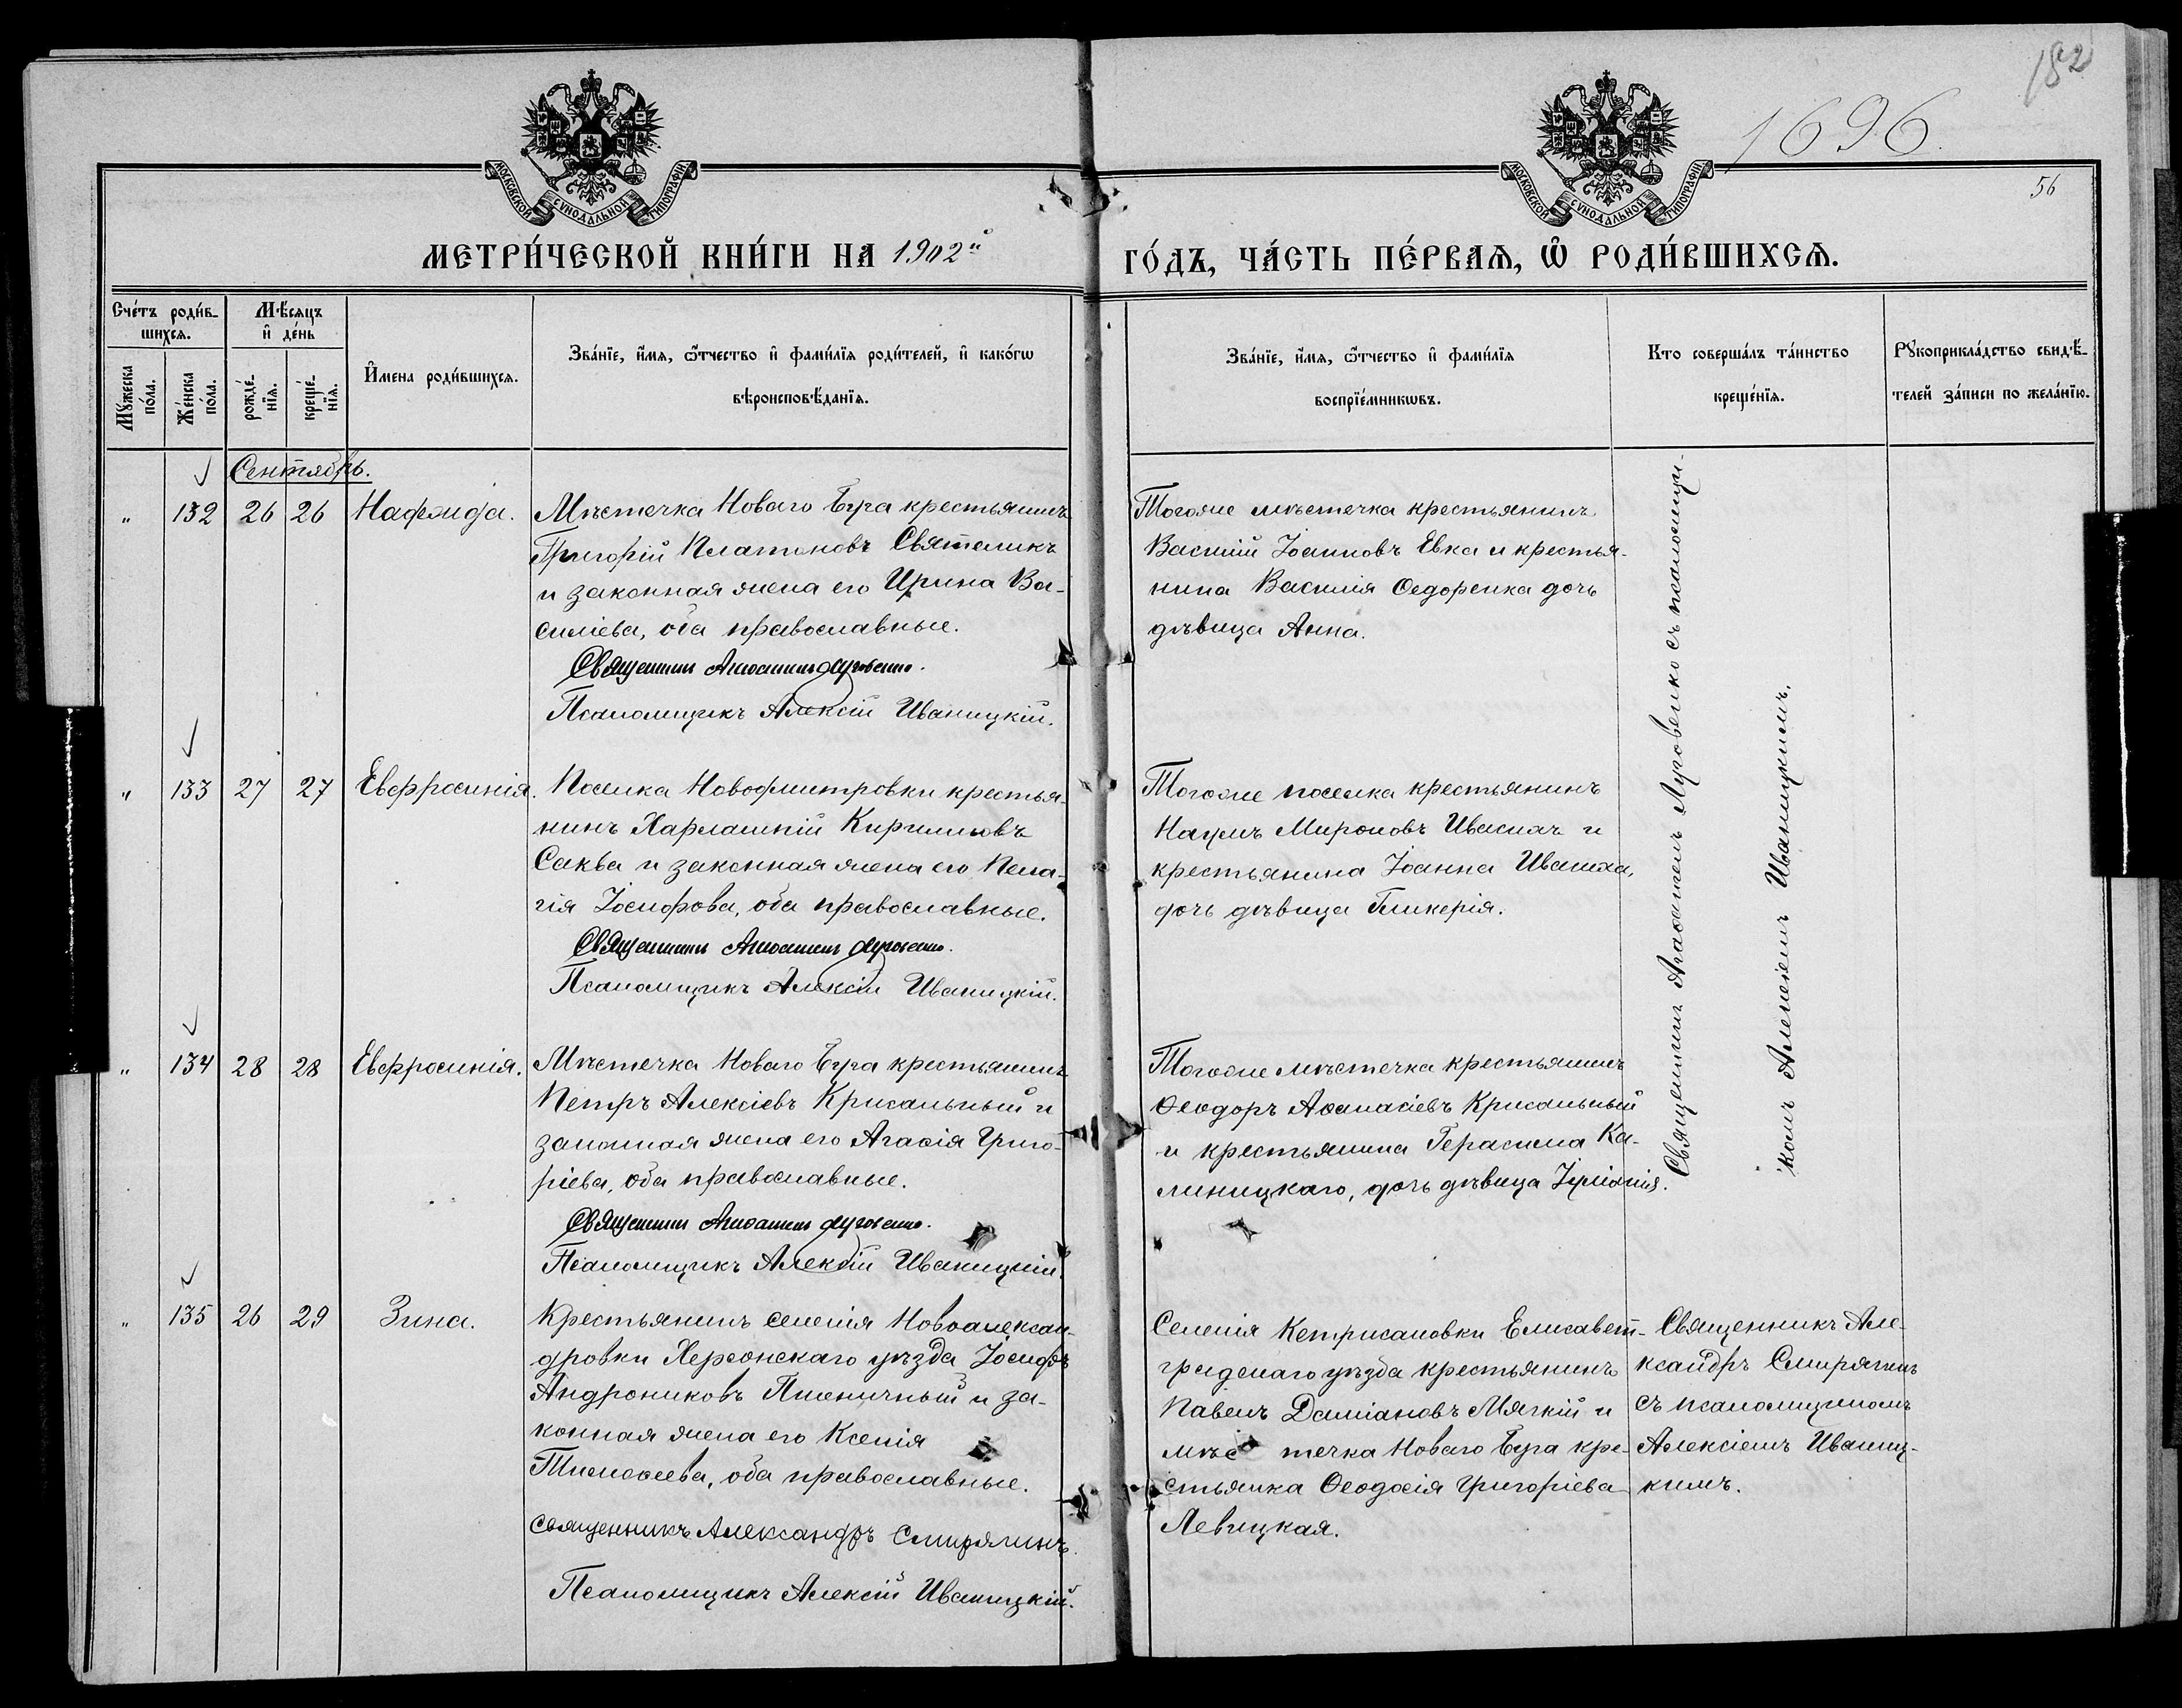 182
1696.
56
МОСКОВСКОЙ СУНОДАЛЬНОЙ ТИПОГРАФІИ
МОСКОВСКОЙ СУНОДАЛЬНОЙ ТИПОГРАФІИ
МЕТРИ́ЧЕСКОЙ КНИ́ГИ НА 1902й
ГО́ДЪ, ЧА́СТЬ ПЕ́РВАѦ, Ѡ҆ РОДИ́ВШИХСѦ.
Сче́тъ роди́в-
шихсѧ.
Мꙋ́жеска по́ла.
Же́нска по́ла.
Мѣ́сѧцъ
и҆ де́нь
рожде́-
нїѧ.
креще́-
нїѧ.
И҆́мена роди́вшихсѧ.
Зва́нїе, и҆́мѧ, ѻ҆́тчество и҆ фами́лїѧ роди́телей, и҆ како́гѡ
вѣроисповѣ́данїѧ.
Зва́нїе, и҆́мѧ, ѻ҆́тчество и҆ фами́лїѧ
воспрїе́мникѡвъ.
Кто соверша́лъ та́инство
креще́нїѧ.
Рꙋкоприкла́дство свидѣ́-
телей за́писи по жела́нїю.
Сентябрь.
" 132 26 26 Надежда.
Мѣстечка Новаго Буга крестьянинъ
Григорій Платоновъ Святеликъ
и законная жена его Ирина Ва-
силіева, оба православные.
Священникъ Агаѳангелъ Луговенко.
Псаломщикъ Алексій Иваницкій.
Тогоже мѣстечка крестьянинъ
Василій Іоанновъ Евка и крестья-
нина Василія Ѳедоренка дочь
дѣвица Анна.
" 133 27 27 Евфросинія.
Поселка Новодмитровки крестья-
нинъ Харлампій Кирилловъ
Саква и законная жена его Пела-
гія Іосифова, оба православные.
Священникъ Агаѳангелъ Луговенко.
Псаломщикъ Алексій Иваницкій.
Тогоже поселка крестьянинъ
Наумъ Мироновъ Ивасихъ и
крестьянина Іоанна Ивасиха,
дочь дѣвица Гликерія.
" 134 28 28 Евфросинія.
Мѣстечка Новаго Буга крестьянинъ
Петръ Алексіевъ Крисальный и
законная жена его Агафія Григо-
ріева, оба православные.
Священникъ Агаѳангелъ Луговенко.
Псаломщикъ Алексій Иваницкій.
Тогоже мѣстечка крестьянинъ
Ѳеодоръ Аѳанасіевъ Крисальный
и крестьянина Герасима Ка-
линицкаго, дочь дѣвица Іуліанія.
Священникъ Агаѳангелъ Луговенко съ псаломщи-
комъ Алексіемъ Иваницкимъ.
" 135 26 29 Зина.
Крестьянинъ селенія Новоалексан-
дровки Херсонскаго уѣзда Іосифъ
Андрониковъ Пшеничный и за-
конная жена его Ксенія
Тимоѳеева, оба православные.
Священникъ Александръ Смирягинъ.
Псаломщикъ Алексій Иваницкій.
Селенія Кетрисановки Елисавет-
градскаго уѣзда крестьянинъ
Павелъ Даміановъ Мягкій и
мѣстечка Новаго Буга кре-
стьянка Ѳеодосія Григоріева
Левицкая.
Священникъ Але-
ксандръ Смирягинъ
съ псаломщикомъ
Алексіемъ Иваниц-
кимъ.